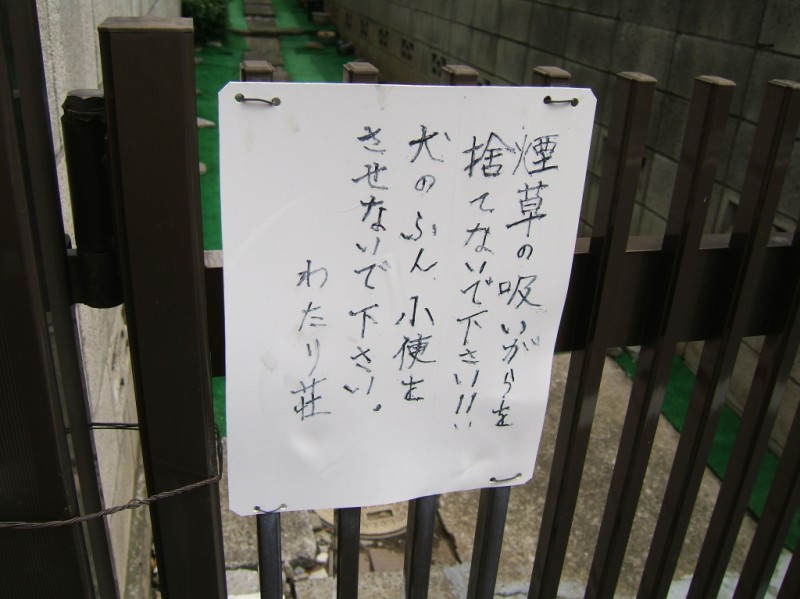 煙草の吸いがらを
捨てないで下さい!!
犬のふん、小便を
させないで下さい。
わたり荘